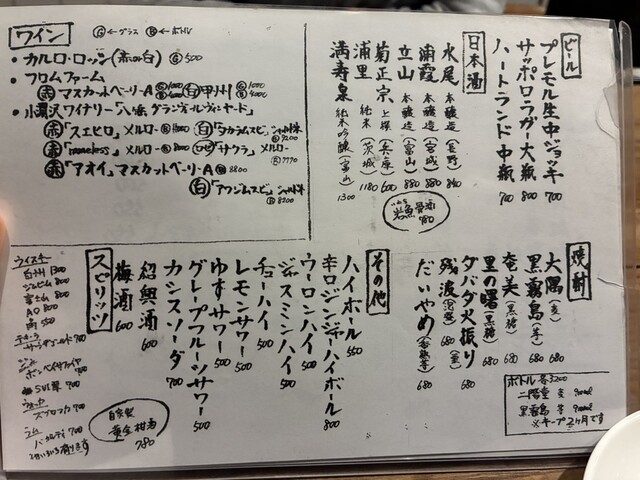 ビール
プレモル生中ジョッキ 700
サッポロラガー大瓶 800
ハートランド中瓶 700
日本酒
水尾 本醸造(長野) 860
浦霞 本醸造(宮城) 880
立山 本醸造(富山) 880
菊正宗 上撰(兵庫) 600
浦里 純米(茨城) 1180
満寿泉 純米吟醸(富山) 1300
岩魚骨酒 980
ワイン
Ⓖ←グラス Ⓑ←ボトル
・カルロ・ロッシ(赤or白) Ⓖ500
・フロムファーム
赤 マスカットベーリーA
白 甲州
赤「スエヒロ」メルロー
赤「nameless」メルロー
「サクラ」メルロー
赤「アオイ」マスカットベーリーA 8800
白 8200
焼酎
大隅(麦) 680
黒霧島(芋) 680
奄美(黒糖) 680
里の曙(黒糖) 680
ダバダ火振り(栗) 680
残波(泡盛) 680
だいやめ 680
ボトル各3200
二階堂 麦 900ml
黒霧島 芋 900ml
※キープ2ヶ月です
その他
ハイボール 550
辛口ジンジャーハイボール 800
ウーロンハイ 500
ジャスミンハイ 500
チューハイ 500
レモンサワー 500
ゆずサワー 500
グレープフルーツサワー 500
カシスソーダ 700
紹興酒 600
梅酒 600
自家製
黄金柑酒
780
スピリッツ
ウイスキー
白州 1300
ジムビーム 800
富士山 800
AO 800
角 550
テキーラ
ジン
ボンベイサファイヤ 700
ウォッカ
ラム
バカルディ 700